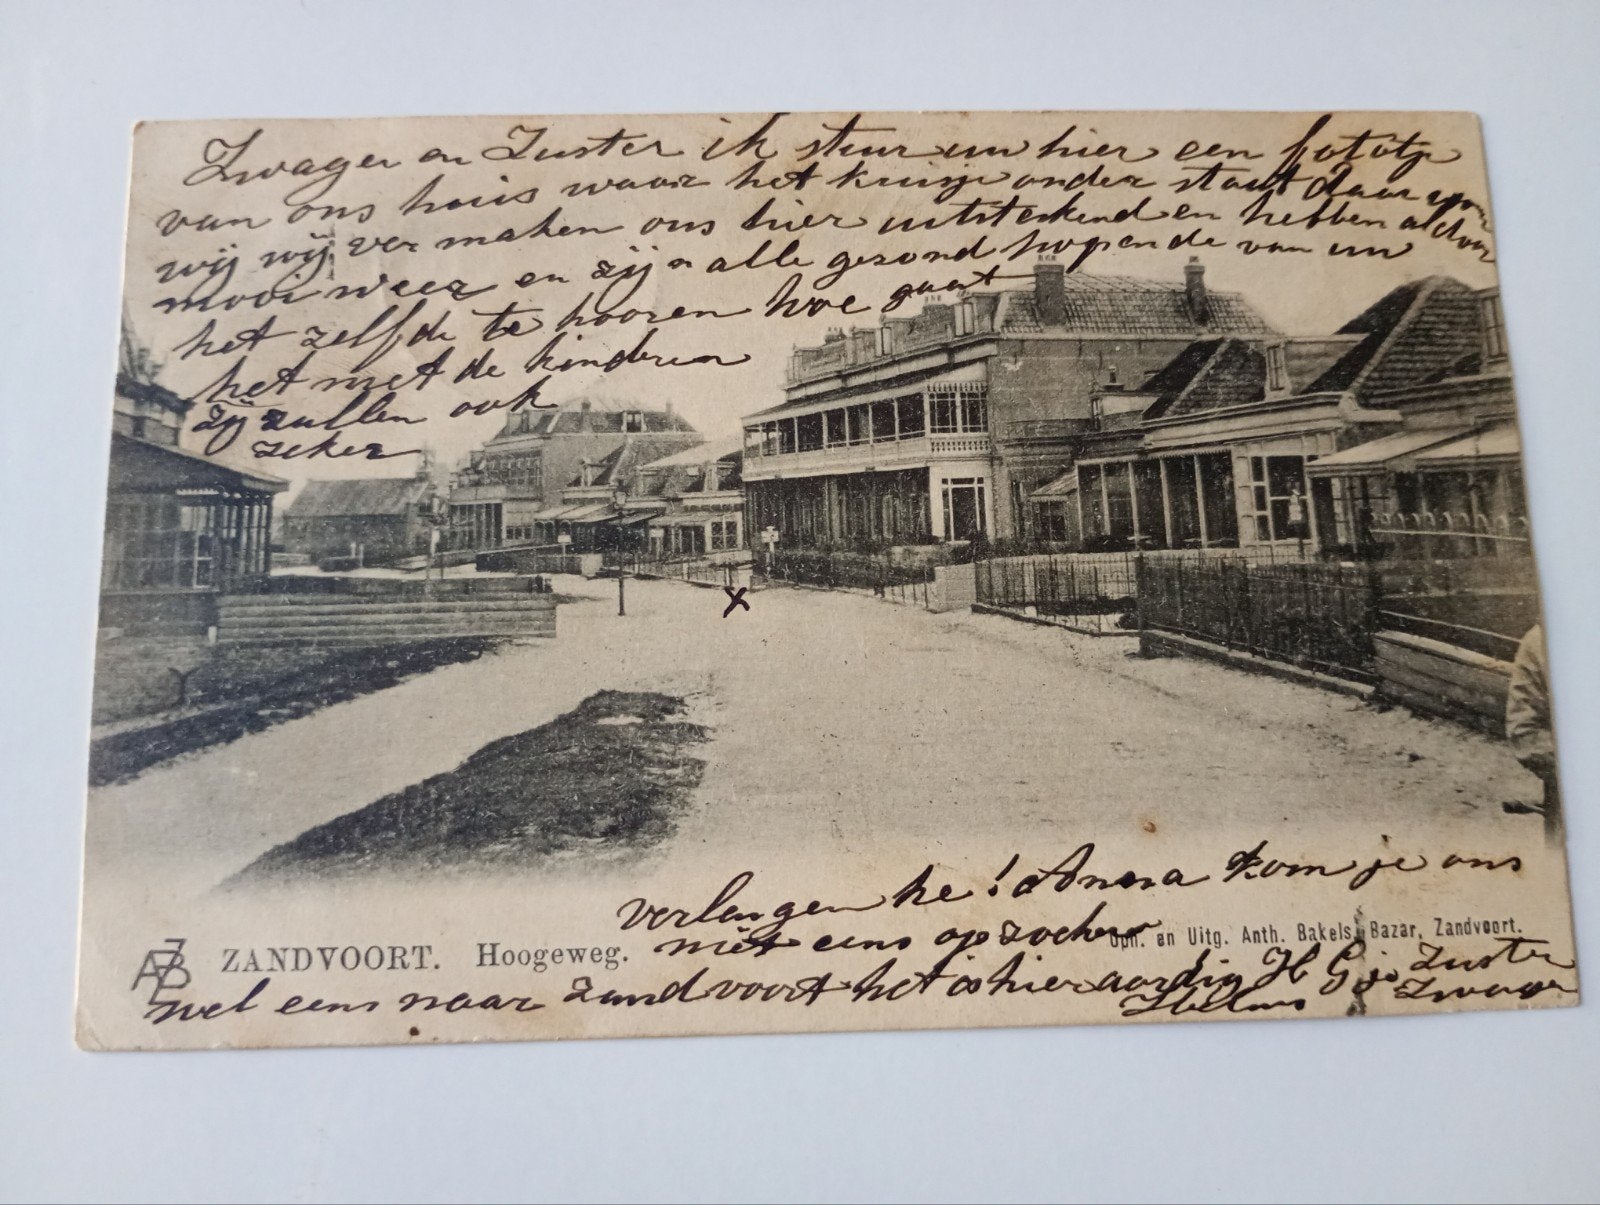 Zwager en Zuster ik stuur uw hier een fototje
van ons huis waar het kruisje onder staat daar
wij wij ver maken ons hier uitstekend en hebben al door
mooi weer en zijn alle gezond hopende van uw
het zelfde te hooren hoe gaat
het met de kinderen
zij zullen ook
zeker
x
verlangen he! Anna kom je ons
niet eens op zoeken
Opn. en Uitg. Anth. Bakels, Bazar, Zandvoort.
ZANDVOORT. Hoogeweg.
wel eens naar zandvoort het is hier aardig H G je Zuster
Zwager